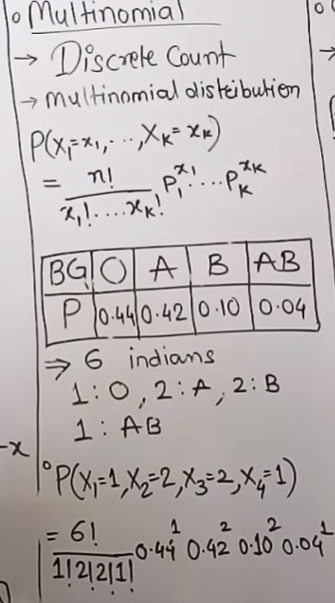 o Multinomial
→ Discrete Count
→ multinomial distribution
P(X₁=x₁,...,Xₖ=xₖ)
= n! / x₁!....xₖ! P₁^x₁....Pₖ^xₖ
BG O A B AB
P 0.44 0.42 0.10 0.04
⇒ 6 indians
1:O, 2:A, 2:B
1: AB
-x
° P(X₁=1,X₂=2,X₃=2,X₄=1)
= 6! / 1!2!2!1! 0.44¹ 0.42² 0.10² 0.04¹